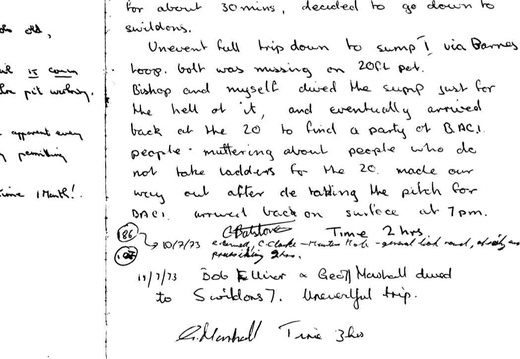 For about 30 mins, decided to go down to
swildons.
Unevent full trip down to sump 1, via Barnes
Loop. bolt was missing on 20ft pot.
Bishop and myself dived the sump just for
the hell of it, and eventually arrived
back at the 20 to find a party of B.A.C.I.
people. muttering about people who do
not take ladders for the 20. made our
way out after de tackling the pitch for
BACI. arrived back on surface at 7pm.
Time 2 hrs.
186
10/7/73 C. Clarke - general look round,
2 hrs.
15/7/73 Bob Elliner & Geoff Marshall dived
to Swildons 7. Uneventful trip.
G. Marshall Time 3 hrs
old,
is
pit
apparent every
permitting
time 1 Month!